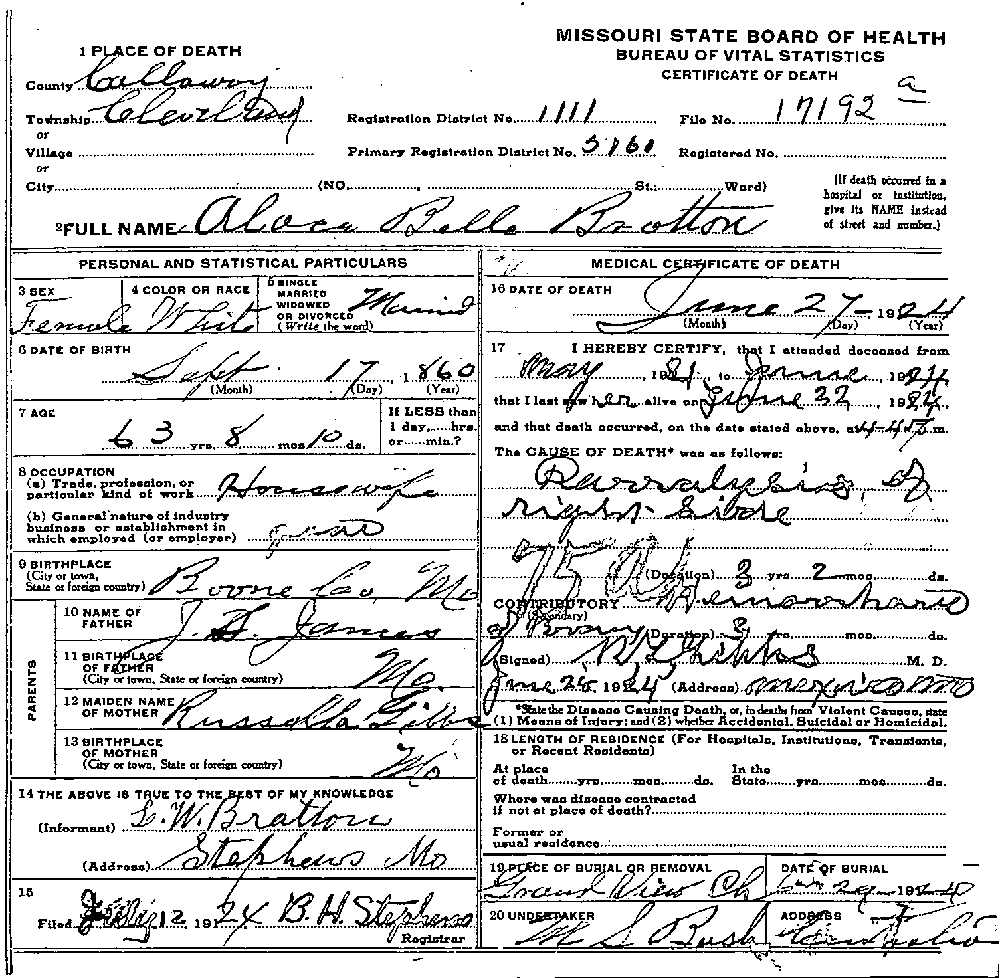 MISSOURI STATE BOARD OF HEALTH
BUREAU OF VITAL STATISTICS
CERTIFICATE OF DEATH
1 PLACE OF DEATH
County Callaway
Township Cleveland
or
Village
or
City (NO. St.; Ward)
Registration District No. 1111
File No. 17192 a
Primary Registration District No. 5161
Registered No.
(If death occurred in a
hospital or institution,
give its NAME instead
of street and number.)
2 FULL NAME Belle Bratton
PERSONAL AND STATISTICAL PARTICULARS
3 SEX
Female
4 COLOR OR RACE
White
5 SINGLE
MARRIED
WIDOWED
OR DIVORCED
(Write the word)
Married
6 DATE OF BIRTH
Sept 17 1860
(Month) (Day) (Year)
7 AGE
63 yrs. 8 mos. 10 ds.
If LESS than
1 day, hrs.
or min.?
8 OCCUPATION
(a) Trade, profession, or
particular kind of work Housewife
(b) General nature of industry
business or establishment in
which employed (or employer)
9 BIRTHPLACE
(City or town,
State or foreign country) Boone Co, Mo
PARENTS
10 NAME OF
FATHER J. James
11 BIRTHPLACE
OF FATHER
(City or town, State or foreign country) Mo.
12 MAIDEN NAME
OF MOTHER Russella Gibbs
13 BIRTHPLACE
OF MOTHER
(City or town, State or foreign country) Mo
14 THE ABOVE IS TRUE TO THE BEST OF MY KNOWLEDGE
(Informant) L. W. Bratton
(Address) Stephens Mo
15
Filed 12 1924 B. H. Stephens
Registrar
MEDICAL CERTIFICATE OF DEATH
16 DATE OF DEATH
June 27 - 1924
(Month) (Day) (Year)
17 I HEREBY CERTIFY, that I attended deceased from
May , 1921, to June , 1924
that I last saw her alive on June 22 , 1924,
and that death occurred, on the date stated above, at m.
The CAUSE OF DEATH* was as follows:
Parralysis of
right side
75 (Duration) 3 yrs. 2 mos. ds.
CONTRIBUTORY Hemorrhage
(Secondary)
(Duration) 3 yrs. mos. ds.
(Signed) Gibbs M. D.
June 1924 (Address) Mexico Mo
*State the Disease Causing Death, or, in deaths from Violent Causes, state
(1) Means of Injury; and (2) whether Accidental, Suicidal or Homicidal.
18 LENGTH OF RESIDENCE (For Hospitals, Institutions, Transients,
or Recent Residents)
At place
of death yrs. mos. ds.
In the
State yrs. mos. ds.
Where was disease contracted
if not at place of death?
Former or
usual residence
19 PLACE OF BURIAL OR REMOVAL
Grand View Ch
DATE OF BURIAL
20 UNDERTAKER
M S Bush
ADDRESS
Centralia